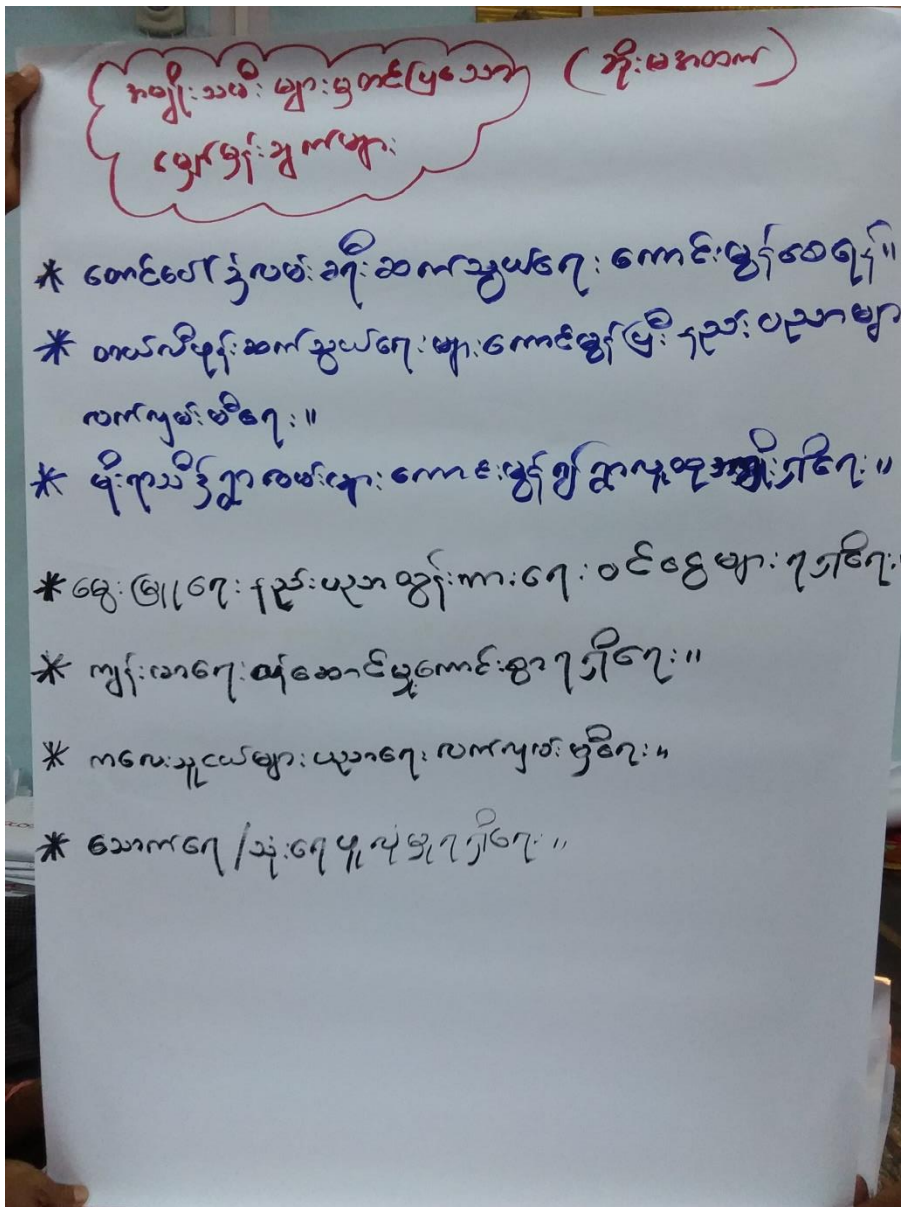 အမျိုးသမီးများမှတင်ပြသော (အိုးမအတက်)
မျှော်မှန်းချက်များ
* တောင်ပေါ်ဒွဲလမ်းခရီးဆက်သွယ်ရေးကောင်းမွန်စေရန်။
* တယ်လီဖုန်းဆက်သွယ်ရေးများကောင်းမွန်ပြီးနည်းပညာများ
လက်လှမ်းမီရေး။
* မိုးရာသီ ရွာလမ်းများကောင်းမွန်၍ရွာလူထု ရှိရေး။
* မွေးမြူရေးနည်းပညာထွန်းကားရေးဝင်ငွေများရရှိရေး
* ကျန်းမာရေးဝန်ဆောင်မှုကောင်းစွာရရှိရေး။
* ကလေးသူငယ်များပညာရေးလက်လှမ်းမှီရေး။
* သောက်ရေ/သုံးရေဖူလုံမှုရရှိရေး။